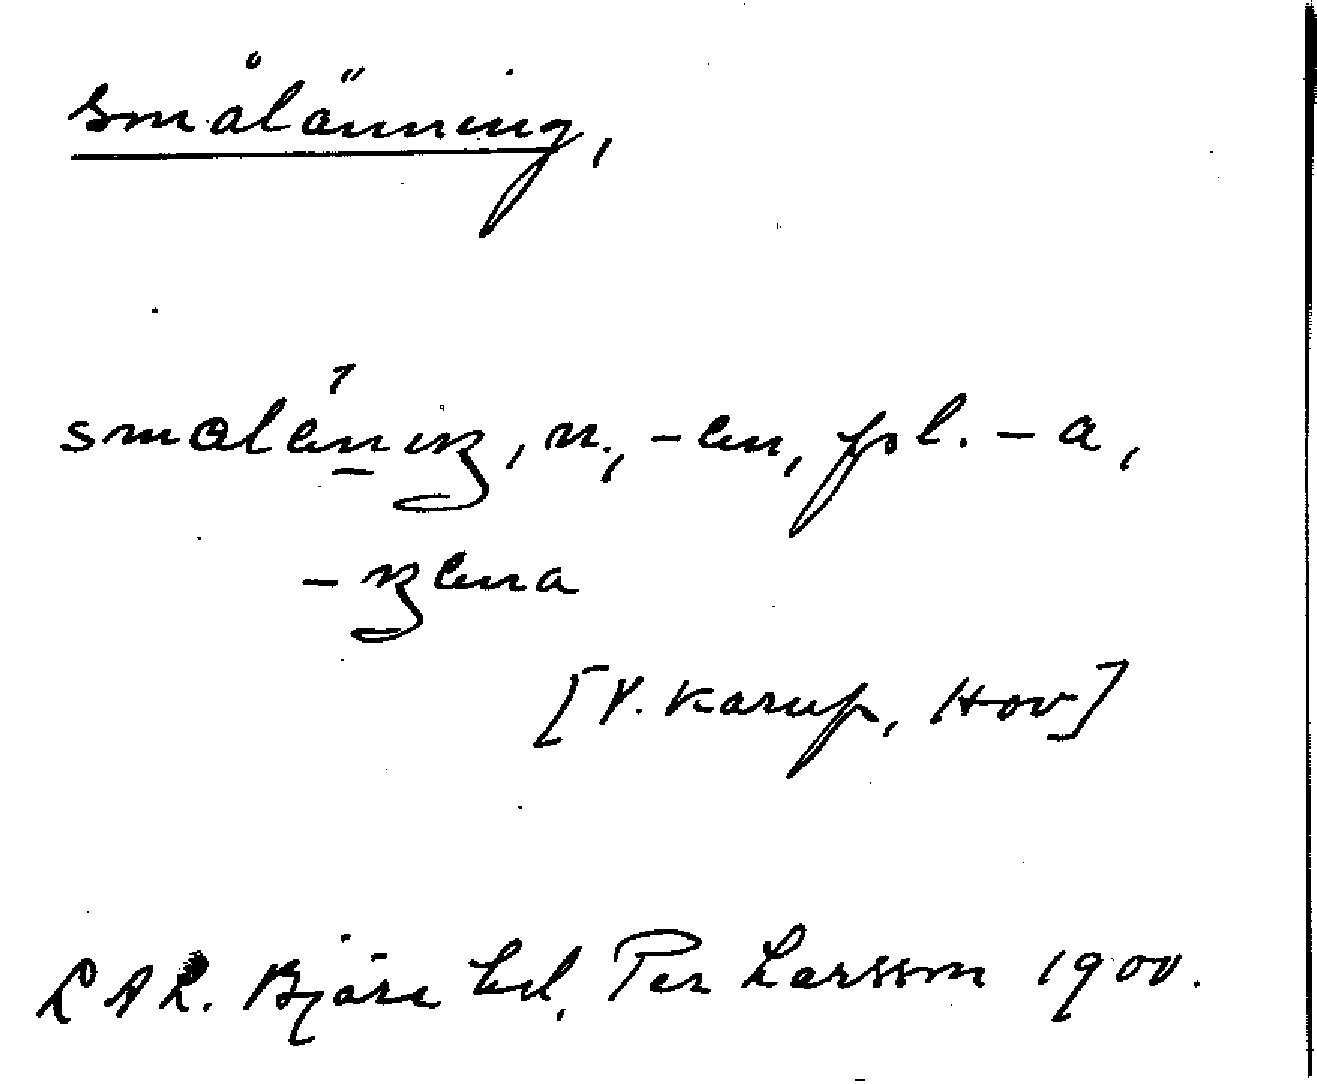 smålänning,
smalénıŋ, n., -en, pl. -a,
-ŋena
[V. Karup, Hov]
LAL. Bjäre hd, Per Larsson 1900.